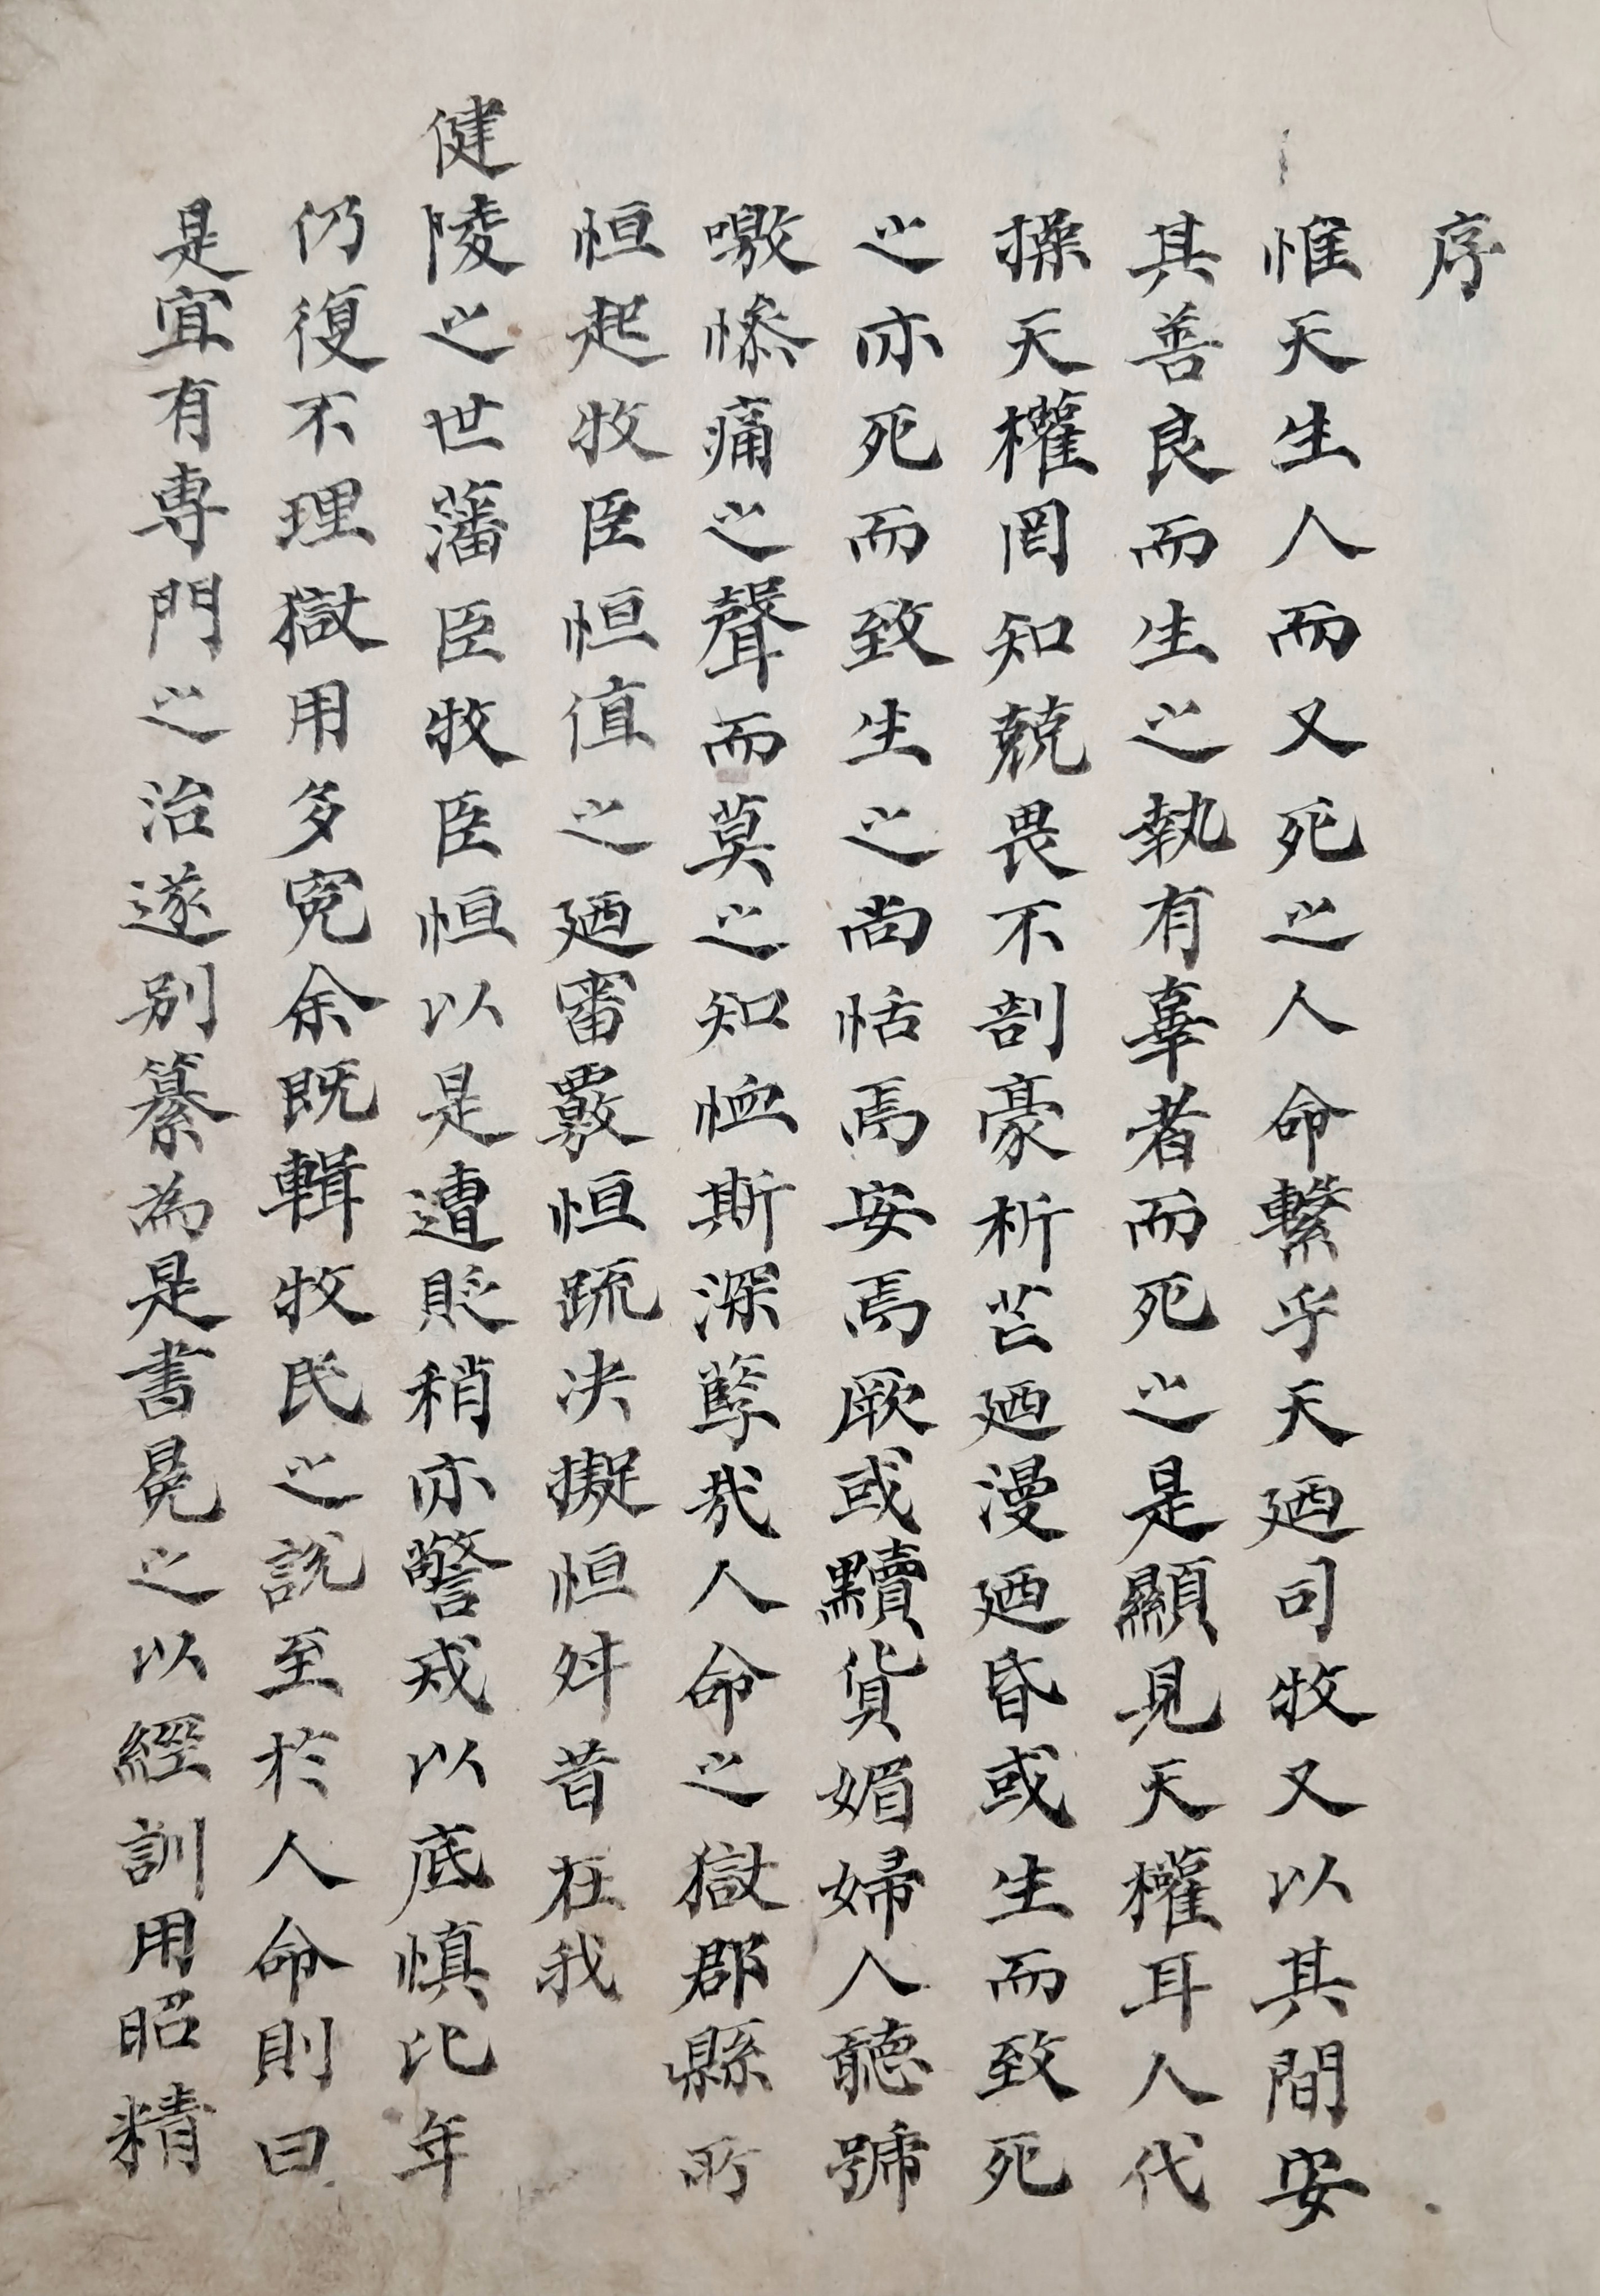 序
惟天生人而又死之人命繫乎天廼司牧又以其間安
其善良而生之執有辜者而死之是顯見天權耳人代
操天權罔知兢畏不剖豪析芒廼漫廼昏或生而致死
之亦死而致生之尚恬焉安焉厥或黷貨媚婦人聽號
噭慘痛之聲而莫之知恤斯深孼㦲人命之獄郡縣所
恒起牧臣恒值之廼審覈恒疏决擬恒舛昔在我
健陵之世藩臣牧臣恒以是遭貶稍亦警戒以底慎比年
仍復不理獄用多寃余既輯牧民之說至於人命則曰
是宜有専門之治遂别纂為是書冕之以經訓用昭精